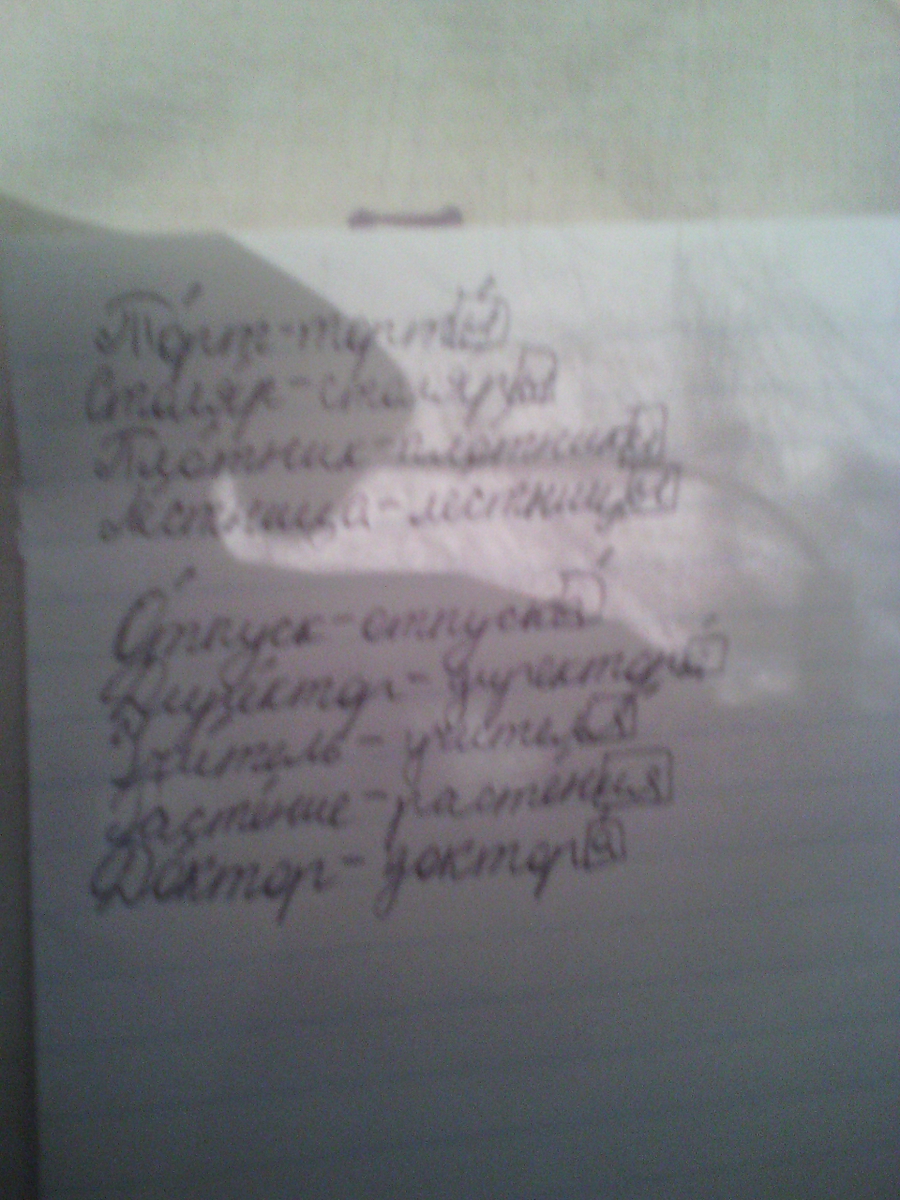 То́рт-торты́
Столяр-столяры
Пло́тник-плотники
Лестница-лестницы
О́тпуск-отпуска́
Дире́ктор-директора́
Учитель-учителя
Расте́ние-расте́ния
До́ктор-доктора